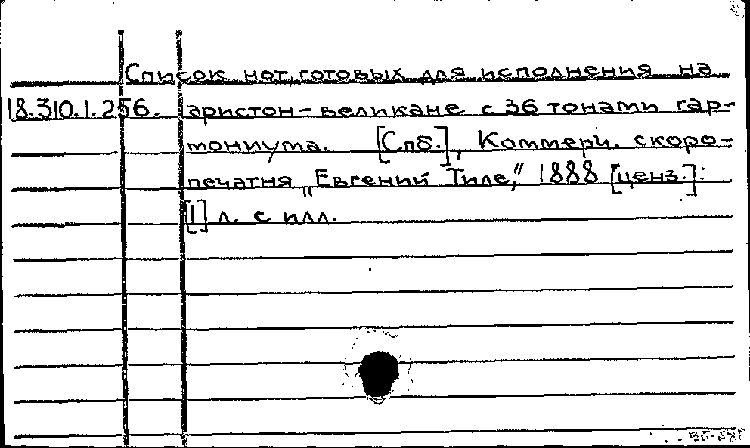 Список нот, готовых для исполнения на
18.310.1.256. аристон-великане с 36 тонами гар-
мониума. [Спб.], Коммерч. скоро-
печатня „Евгений Тиле," 1888 [ценз.].
[1] л. с илл.